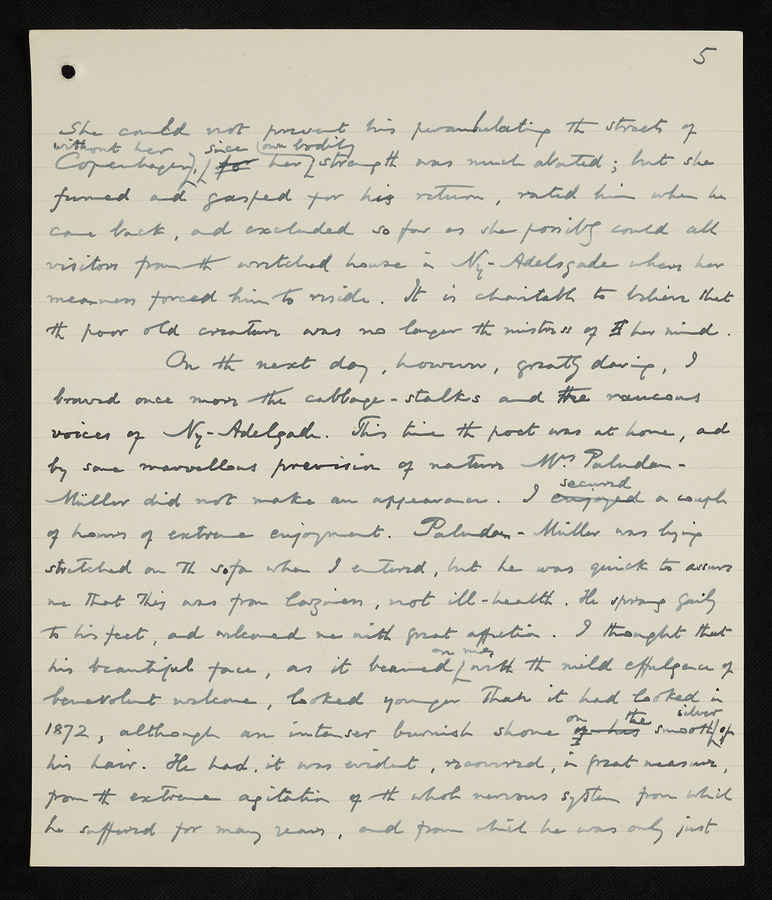 5
She could not prevent his perambulating the streets of
without her since own bodily
Copenhagen, for her strength was much abated; but she
fumed and gasped for his return, rated him when he
came back, and excluded so far as she possibly could all
visitors from the wretched house in Ny-Adelsgade where her
meanness forced him to reside. It is charitable to believe that
the poor old creature was no longer the mistress of her mind.
On the next day, however, greatly daring, I
braved once more the cabbage-stalks and the raucous
voices of Ny-Adelgade. This time the poet was at home, and
by some marvellous prevision of nature Mrs Paludan-
secured
Müller did not make an appearance. I enjoyed a couple
of hours of extreme enjoyment. Paludan-Müller was lying
stretched on the sofa when I entered, but he was quick to assure
me that this was from laziness, not ill-health. He sprang gaily
to his feet, and welcomed me with great affection. I thought that
on me,
his beautiful face, as it beamed with the mild effulgence of
benevolent welcome, looked younger than it had looked in
on the silver
1872, although an intenser burnish shone of his smooth of
his hair. He had, it was evident, recovered, in great measure,
from the extreme agitation of the whole nervous system from which
he suffered for many years, and from which he was only just